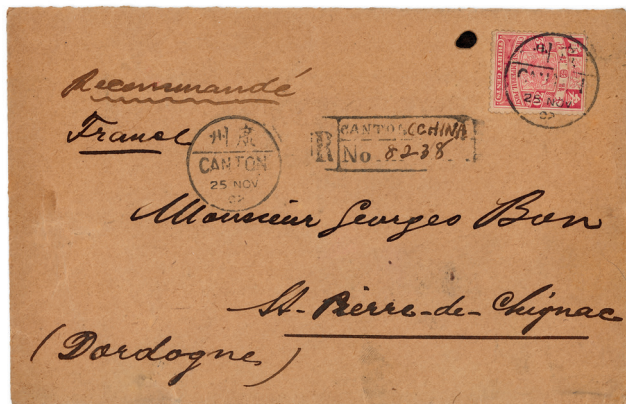 Recommandé
France
州廣
CANTON
25 NOV
02
R CANTON (CHINA)
No. 8238
CAN
25 NOV
Monsieur Georges Bon
St-Pierre-de-Chignac
(Dordogne)